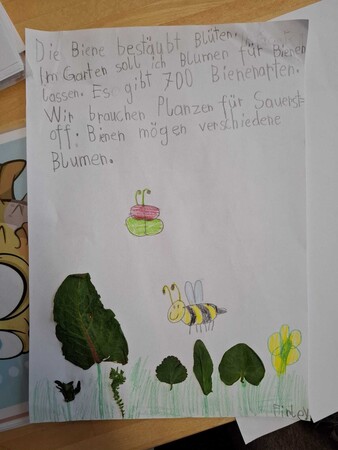 Die Biene bestäubt Blüten.
Im Garten soll ich Blumen für Bienen
lassen. Es gibt 700 Bienenarten.
Wir brauchen Planzen für Sauerst-
off. Bienen mögen verschiedene
Blumen.
Finley